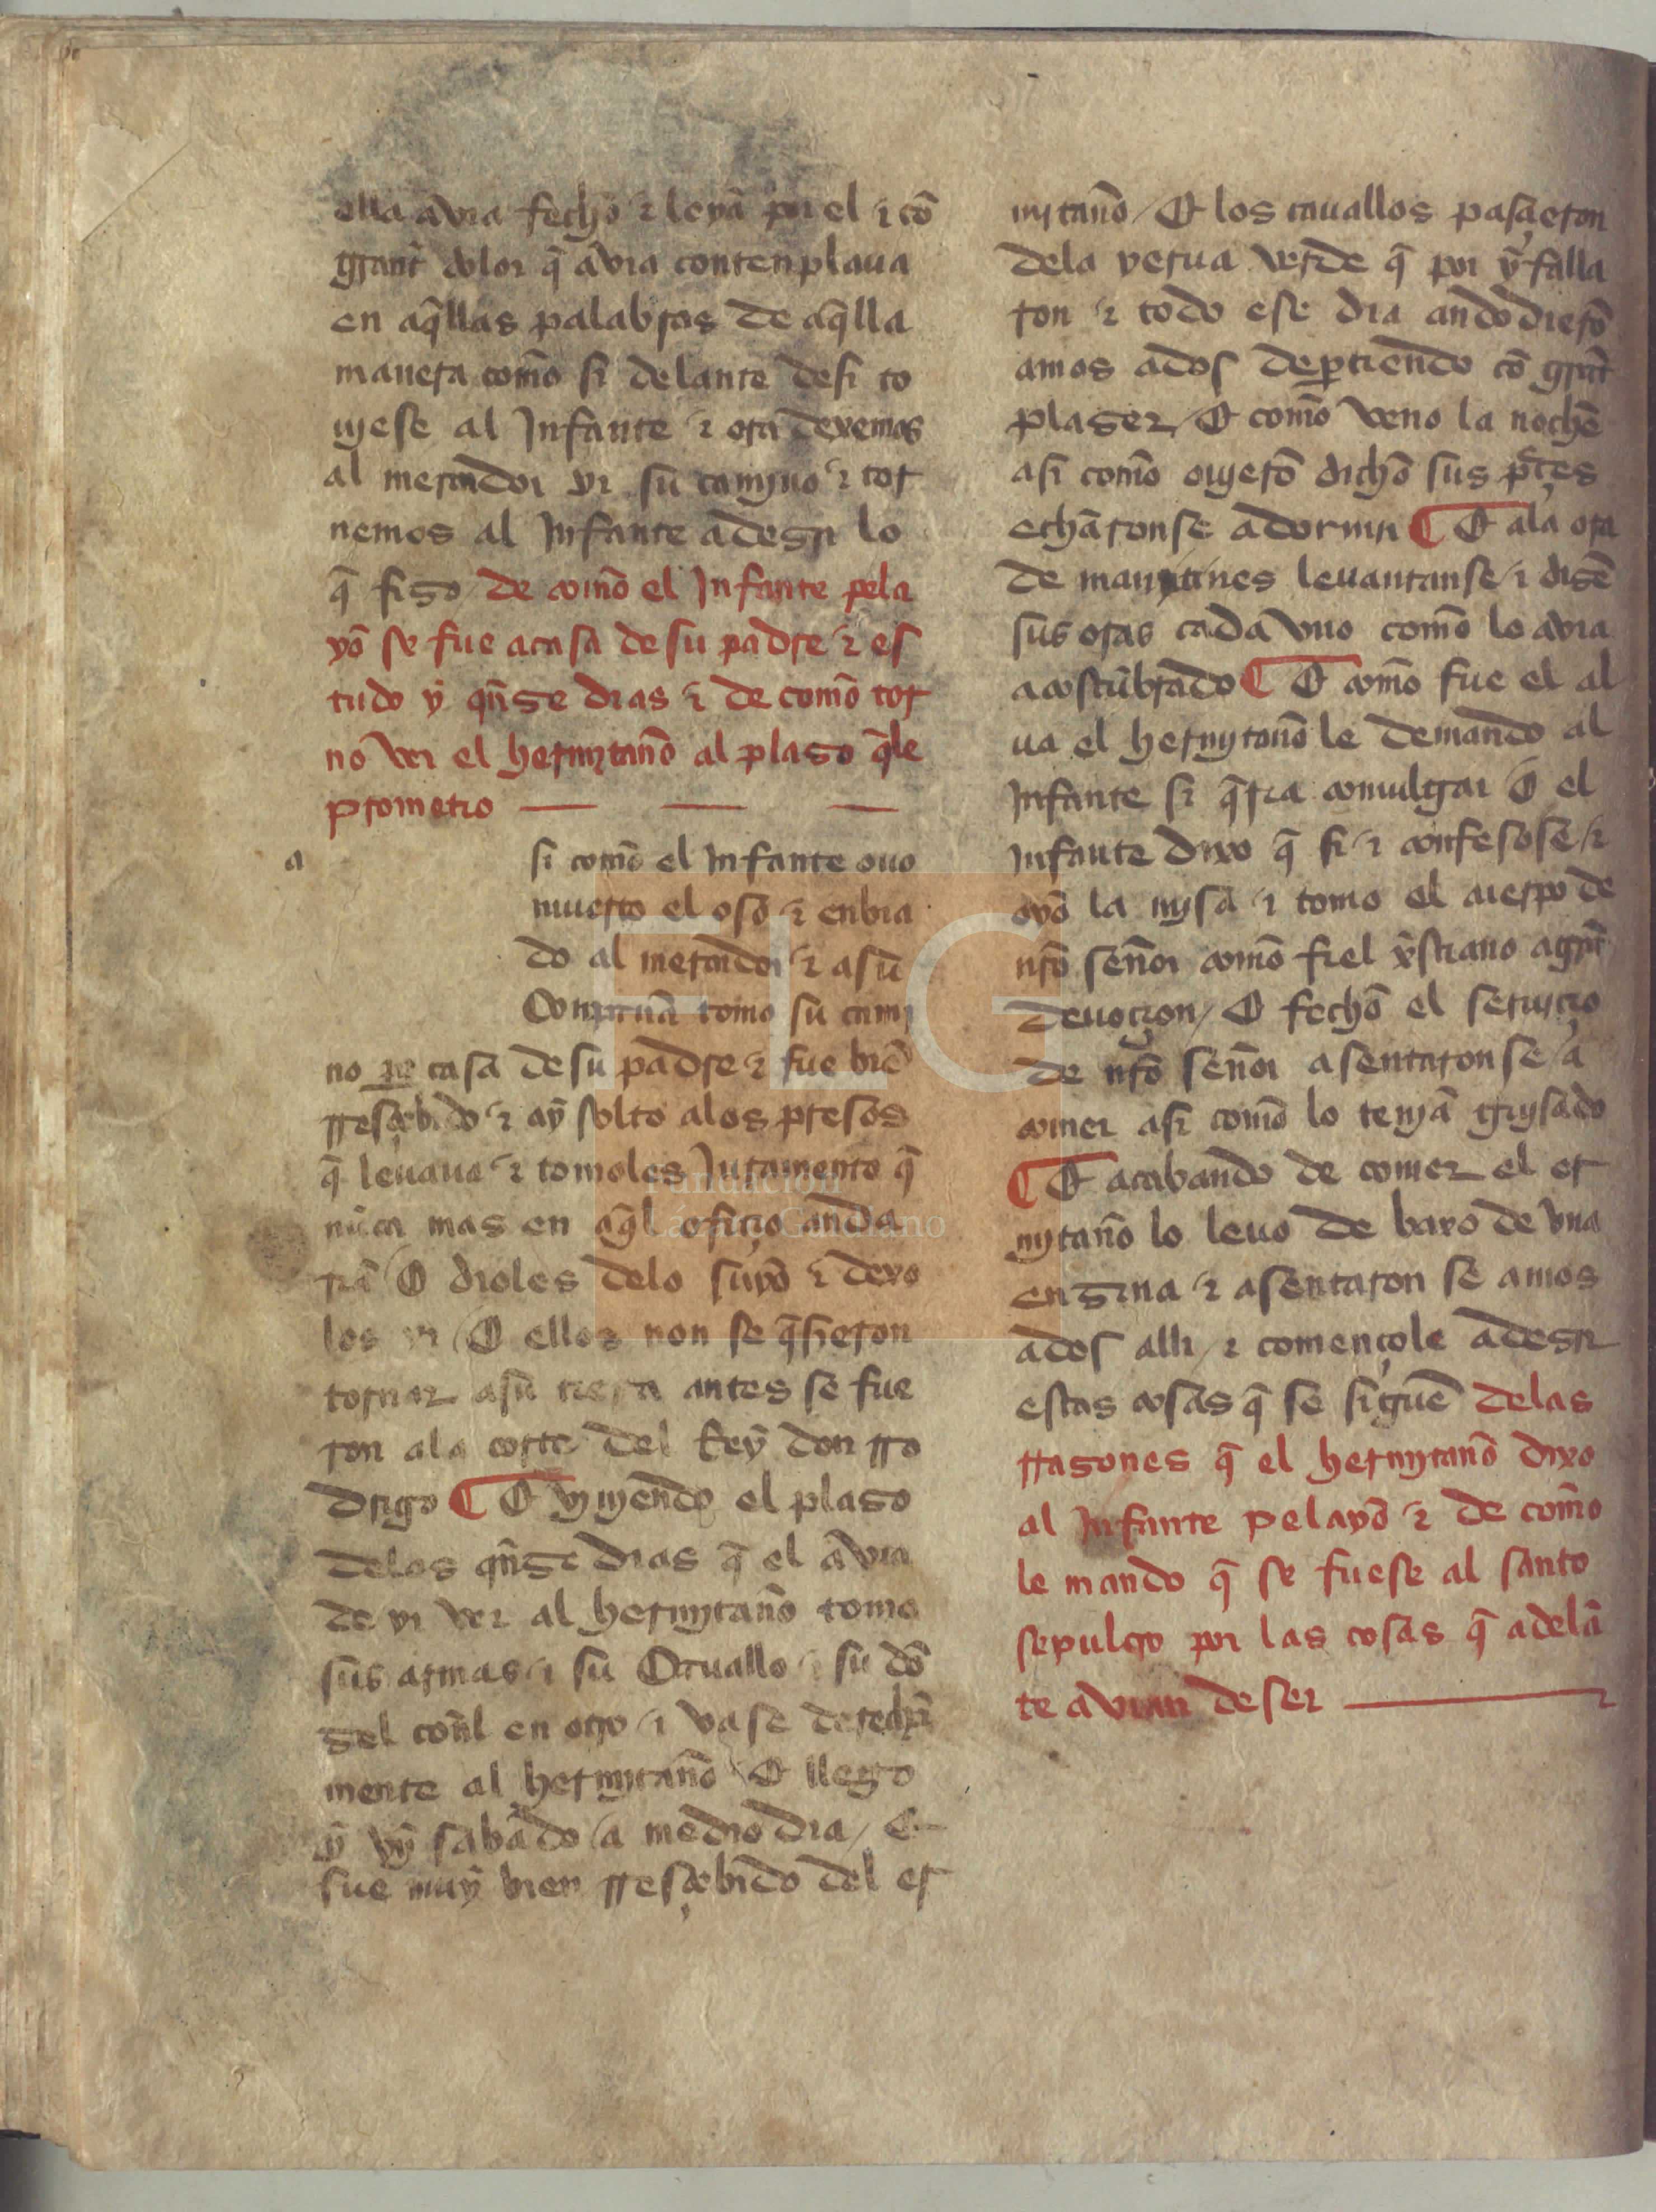 ella avia fecho ⁊ leyā por el ⁊ cō
grant̄ dolor q̄ avia contenplaua
en aq̄llas palabras de aq̄lla
manera comō si delante desi to
viese al Infante ⁊ ora dexemos
al mercador yr su camino ⁊ tor
nemos al Infante adezir lo
q̄ fizo de comō el Infante pela
yō se fue acasa de su padre ⁊ es
tudo ȳ qn̄ze dias ⁊ de comō tor
no ver el hermitanō al plazo q̄le
prometio
a
si comō el Infante ouo
muerto el oso ⁊ enbia
do al mercador ⁊ asu
Conpanā tomo su cami
no casa de su padre ⁊ fue biē
rresçebido ⁊ aȳ solto alos presos
q̄ leuaua ⁊ tomoles Juramento q̄
nūca mas en aq̄l ofiçio anda
riā E dioles delo suyo ⁊ dexo
los yr E ellos non se q̄sieron
tornar asu tierra antes se fue
ron ala corte del Rey don rro
drigo ¶ E viniendo el plazo
delos qn̄ze dias q̄ el avia
de yr ver al hermitanō tomo
sus armas ⁊ su Cauallo ⁊ su dō
zel con̄l en otro ⁊ vase derecha
mente al hermitanō E llego
ȳ vn̄ sabado a medio dia / E
fue muȳ bien rresçebido del er
mitanō / E los cauallos pasçieron
dela yerua verde q̄ por ȳ falla
ron ⁊ todo ese dia andodierō
amos ados dep̄tiendo cō grān̄t
plazer / E comō veno la nochē
asi comō ovierō dichō sus p̄çes
echāronse adormir ¶ E ala ora
de maytines leuantanse ⁊ dizē
sus oras cada vno comō lo avia
acostūbrado ¶ E comō fue el al
ua el hermitanō le demando al
Infante si q̄ria comulgar E el
Infante dixo q̄ si ⁊ confesose ⁊
oyō la misa ⁊ tomo el cuerpo de
nr̄o sen̄or comō fiel x̄stiano agrāt
deuoçion / E fechō el seruiçio
de nr̄o sen̄or asentaronse a
comer asi comō lo teniā guisado
¶ E acabando de comer el er
mitanō lo leuo de baxo de vna
enzina ⁊ asentaron se amos
ados alli / ⁊ començole adezir
estas cosas q̄ se siguē delas
rrazones q̄ el hermitanō dixo
al Infante pelayō ⁊ de comō
le mando q̄ se fuese al santo
sepulcro por las cosas q̄ adelā
te avian de ser
FLG
Fundación
Lázaro Galdiano